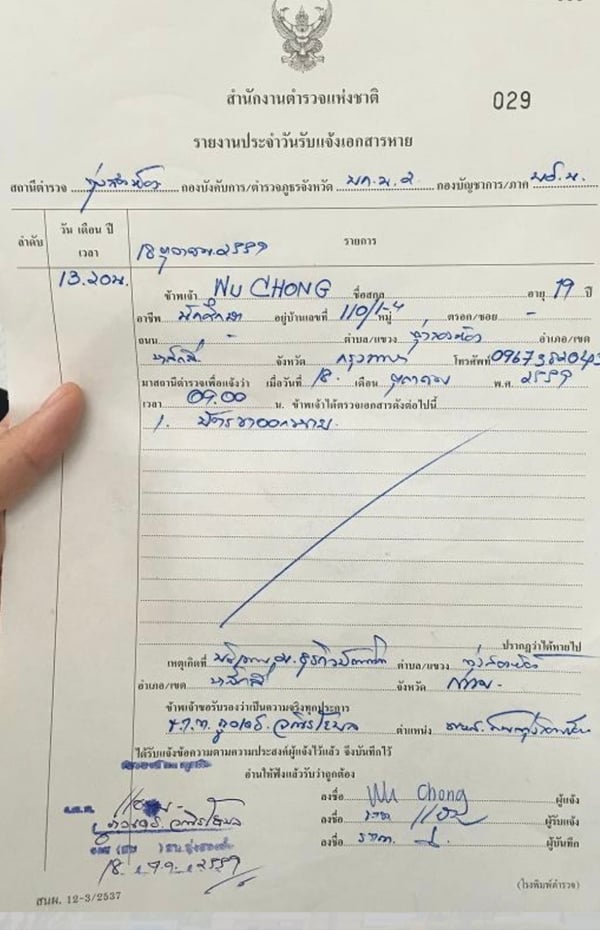 029
สำนักงานตำรวจแห่งชาติ
รายงานประจำวันรับแจ้งเอกสารหาย
สถานีตำรวจ ทุ่งสองห้อง กองบังคับการ/ตำรวจภูธรจังหวัด บก.น.๒ กองบัญชาการ/ภาค บช.น.
ลำดับ วัน เดือน ปี เวลา รายการ
18 ตุลาคม ๒๕๕๙
13.20น. ข้าพเจ้า WU CHONG ชื่อสกุล อายุ 19 ปี
อาชีพ นักศึกษา อยู่บ้านเลขที่ 110/1-4 หมู่ ตรอก/ซอย -
ถนน - ตำบล/แขวง ทุ่งสองห้อง อำเภอ/เขต
หลักสี่ จังหวัด กรุงเทพฯ โทรศัพท์
มาสถานีตำรวจเพื่อแจ้งว่า เมื่อวันที่ 18. เดือน ตุลาคม พ.ศ. ๒๕๕๙
เวลา 09.00 น. ข้าพเจ้าได้ตรวจเอกสารดังต่อไปนี้
1. บัตรขาออก
ปรากฏว่าได้หายไป
เหตุเกิดที่ ม.ธุรกิจบัณฑิตย์ ตำบล/แขวง ทุ่งสองห้อง
อำเภอ/เขต หลักสี่ จังหวัด กทม.
ข้าพเจ้าขอรับรองว่าเป็นความจริงทุกประการ
ตำแหน่ง
ได้รับแจ้งข้อความตามความประสงค์ผู้แจ้งไว้แล้ว จึงบันทึกไว้
อ่านให้ฟังแล้วรับว่าถูกต้อง
ลงชื่อ Wu Chong ผู้แจ้ง
ลงชื่อ ผู้รับแจ้ง
ลงชื่อ ผู้บันทึก
18 ต.ค. ๒๕๕๙
(โรงพิมพ์ตำรวจ)
สนผ. 12-3/2537